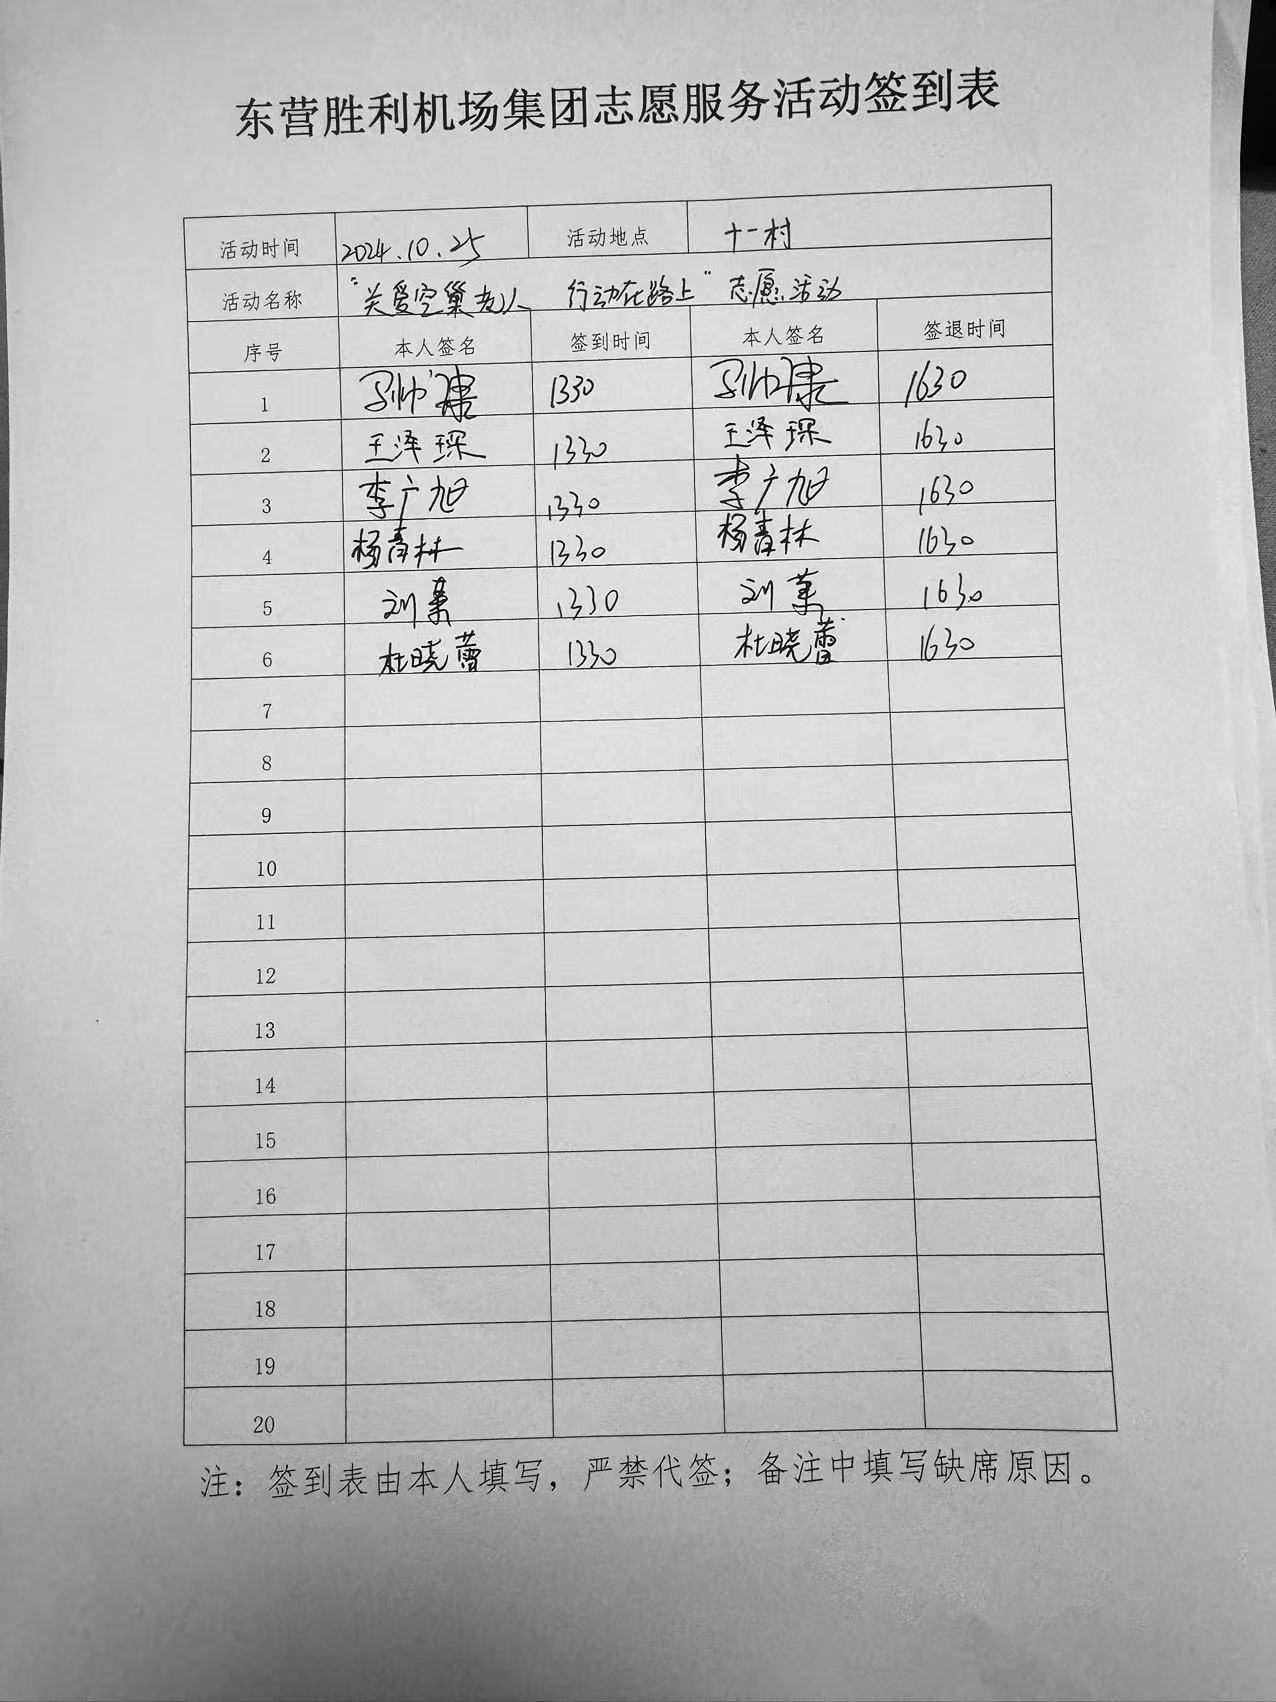 东营胜利机场集团志愿服务活动签到表
活动时间 2024.10.25 活动地点 十一村
活动名称 “关爱空巢老人 行动在路上”志愿活动
序号 本人签名 签到时间 本人签名 签退时间
1 1330 1630
2 王泽琛 1330 王泽琛 1630
3 李广旭 1330 李广旭 1630
4 杨青林 1330 杨青林 1630
5 刘 1330 刘 1630
6 杜晓蕾 1330 杜晓蕾 1630
7
8
9
10
11
12
13
14
15
16
17
18
19
20
注：签到表由本人填写，严禁代签；备注中填写缺席原因。